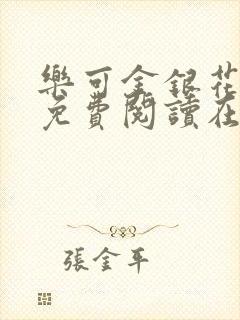 樂可金銀花
免費閱讀在
張金平